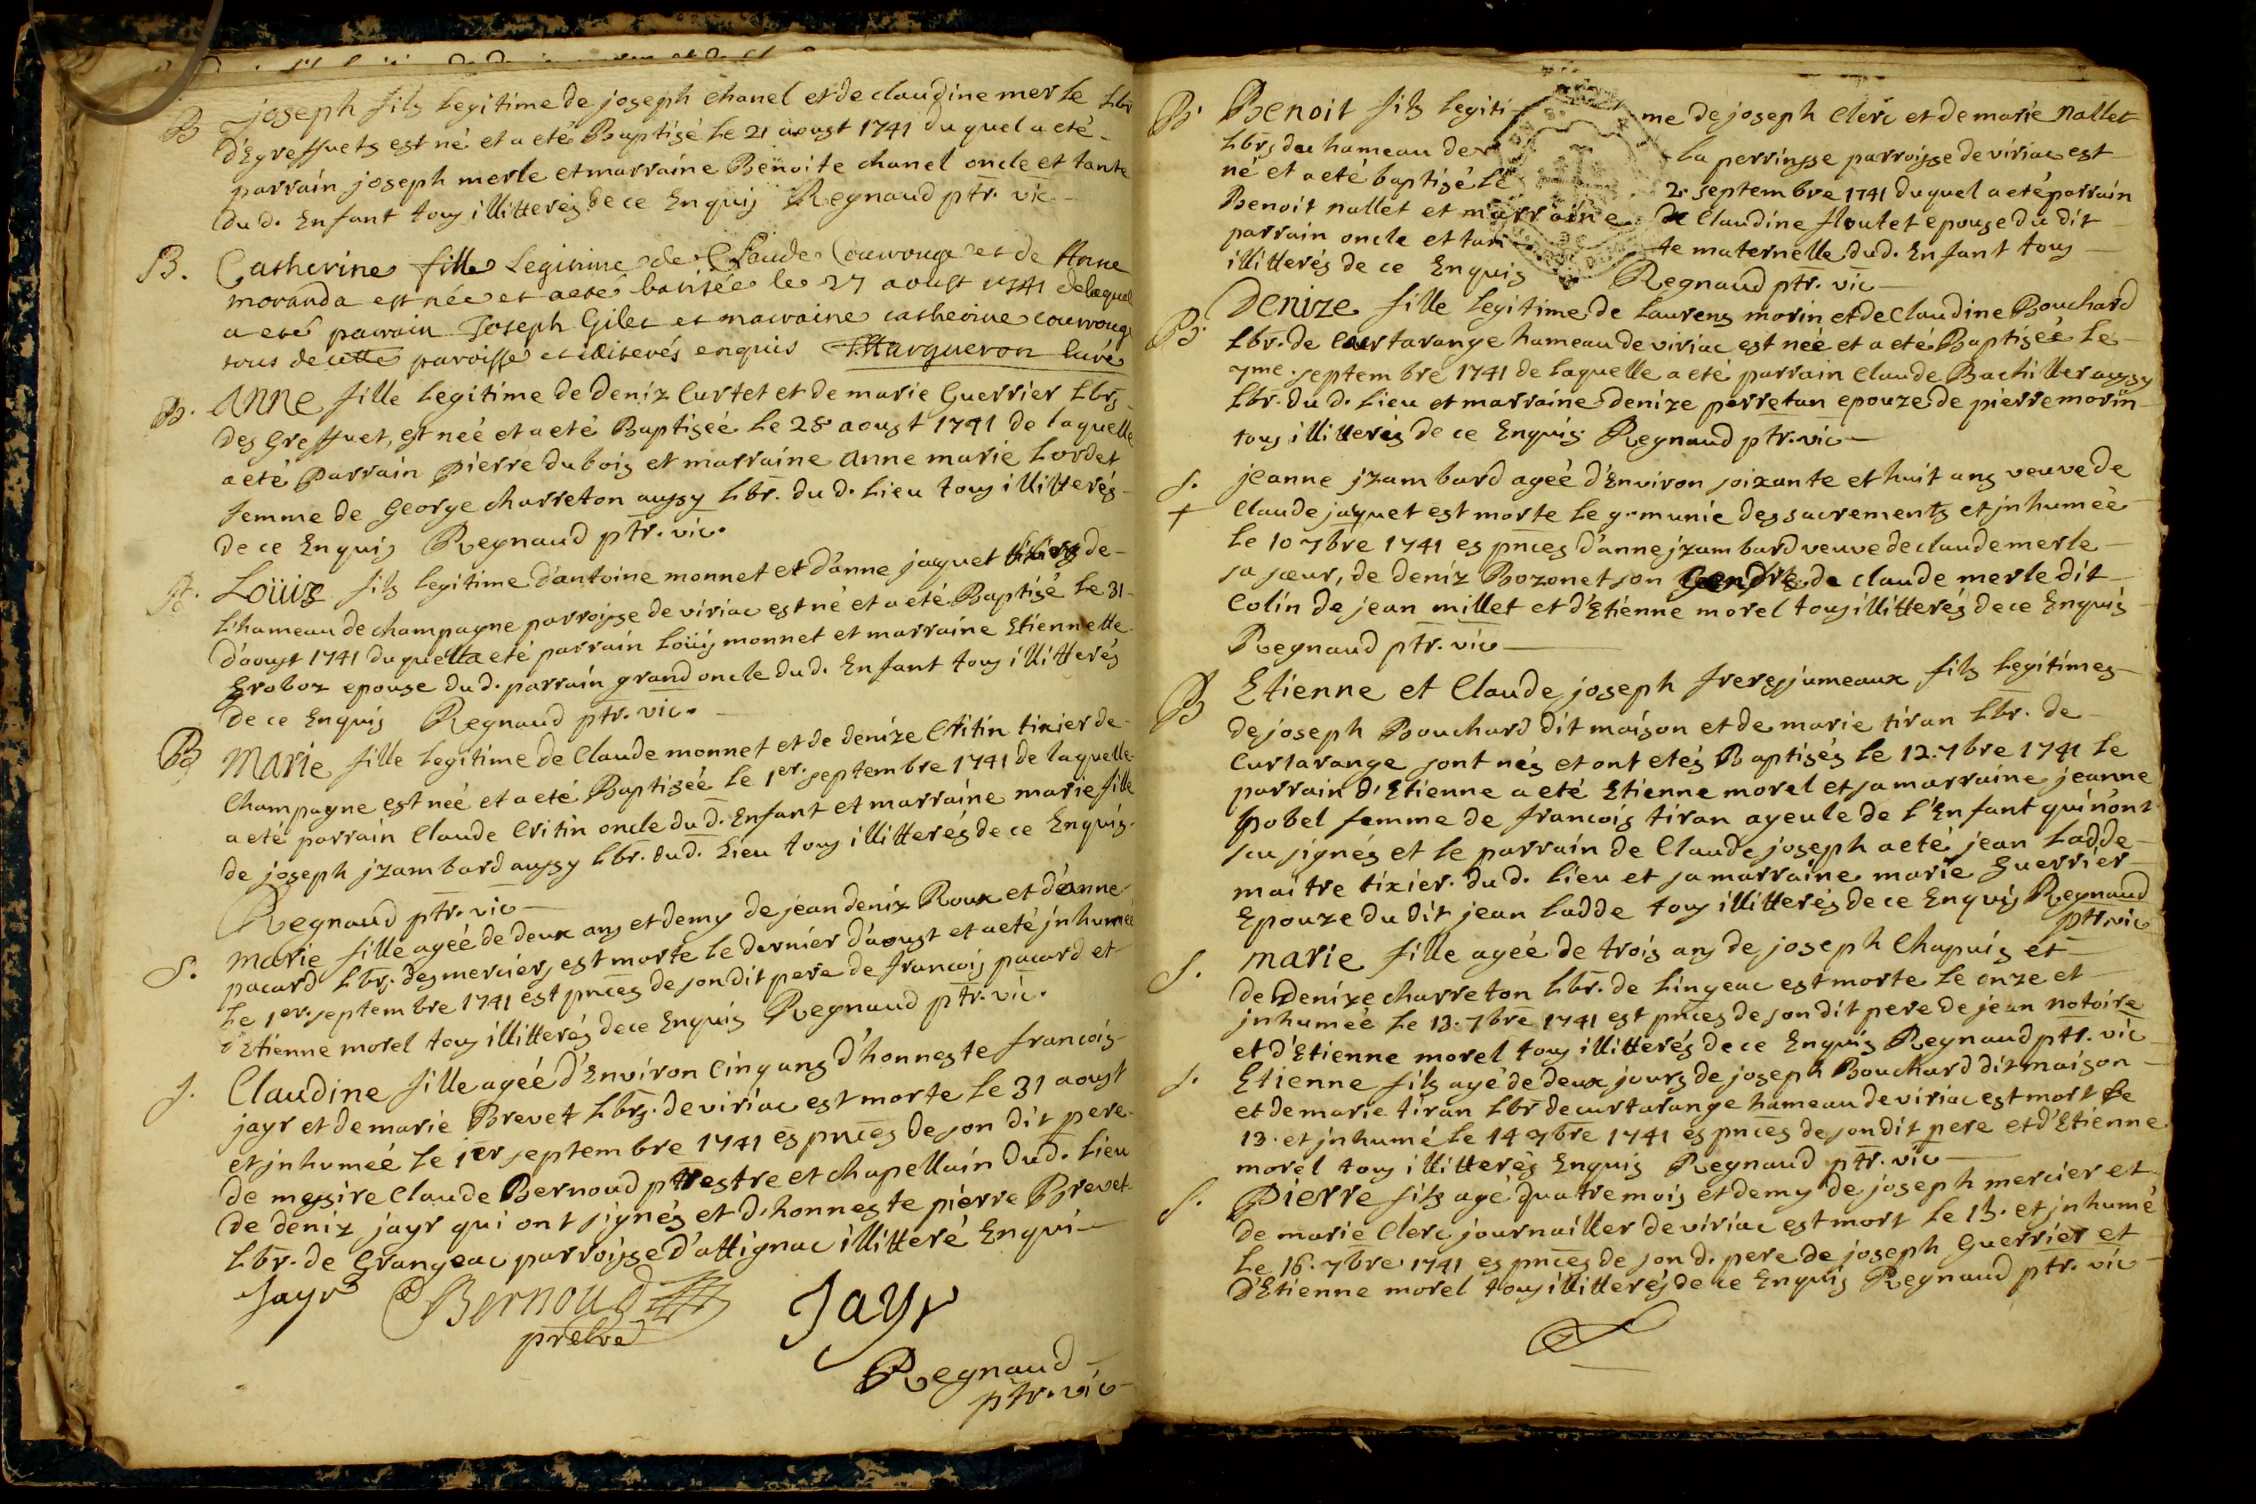 B joseph fils legitime de joseph chanel et de claudine merle Lbr
d'Egreffuets est né et a eté Baptisé le 21 aougt 1741 du quel a eté
parrain joseph merle et marraine Benoite chanel oncle et tante
du d. Enfant tous illitterés de ce Enquis Regnaud ptr. vic
B. Catherine fille Legitime de Claude Couvouge et de Anne
moranda est née et a eté batisée le 27 aoust 1741 de laquel
a eté parrain Joseph Gilet et marraine catherine couvouge
tous de cette paroisse et illiterés enquis Margueron Curé
B. Anne fille legitime de Deniz Curtet et de marie Guerrier Lbrs
des Greffuet, est neé et a eté Baptiseé le 28 aougt 1741 de laquelle
a eté Parrain Pierre dubois et marraine Anne marie Lordet
femme de George charreton aussy Lbr. du d. Lieu tous illitterés
de ce Enquis Regnaud ptr. vic.
B. Loüis fils legitime d'antoine monnet et d'anne jaquet de
L'hameau de champagne parroisse de viriac est né et a eté Baptisé le 31
d'aougt 1741 duquel a eté parrain Loüis monnet et marraine Etiennette
Broboz epouse du d. parrain grand oncle du d. Enfant tous illitterés
de ce Enquis Regnaud ptr. vic.
B marie fille legitime de Claude monnet et de denize Critin tixier de
Champagne est neé et a eté Baptiseé le 1er. septembre 1741 de laquelle
a eté parrain Claude Critin oncle du d. Enfant et marraine marie fille
de joseph jzambard aussy Lbr. du d. Lieu tous illitterés de ce Enquis.
Regnaud ptr. vic
S. Marie fille ageé de deux ans et demy de jean deniz Roux et d'anne
pacard Lbrs. des merciers est morte le dernier d'aougt et a eté jnhumeé
le 1er. septembre 1741 est pnces de son dit pere de francois pacard et
d'Etienne morel tous illitterés de ce Enquis Regnaud ptr. vic.
S. Claudine fille ageé d'Environ Cinq ans d'honneste francois
jayr et de marie Brevet Lbrs. de viriac est morte le 31 aougt
et jnhumeé le 1er septembre 1741 es pnces de son dit pere
de messire Claude Bernoud ptrestre et chapellain du d. Lieu
de deniz jayr qui ont signés et d'honneste pierre Brevet
Lbr. de Grangeac parroisse d'attignac illitteré Enqui
Jayr Bernoud Jayr
pretre
Regnaud
ptr. vic
B Benoit fils legitime de joseph Clerc et de marie Nallet
Lbrs du hameau de la perrinsse parroisse de viriac est
né et a eté baptisé le 2. septembre 1741 duquel a eté parrain
Benoit nallet et marraine Claudine floutet epouse du dit
parrain oncle et tante maternelle du d. Enfant tous
illitterés de ce Enquis Regnaud ptr. vic
B Denize fille legitime de Laurens morin et de Claudine Bouchard
Lbr. de Curtarange hameau de viriac est neé et a eté Baptiseé le
7me. septembre 1741 de laquelle a eté parrain Claude Bachiller aussy
Lbr. du d. Lieu et marraine denize perretan epouze de pierre morin
tous illitterés de ce Enquis Regnaud ptr. vic
S. jeanne jzambard ageé d'Environ soixante et huit ans veuve de
+ Claude jaquet est morte le 9. munie des sacrements et jnhumeé
le 10 7bre 1741 es pnces d'anne jzambard veuve de claude merle
sa sœur, de deniz Bozonet son Gendre de claude merle dit
Colin de jean millet et d'Etienne morel tous illitterés de ce Enquis
Regnaud ptr. vic
B Etienne et Claude joseph freres jumeaux fils legitimes
de joseph Bouchard dit maison et de marie tiran Lbr. de
Curtarange sont nés et ont etés Baptisés le 12. 7bre 1741 le
parrain d'Etienne a eté Etienne morel et sa marraine jeanne
pobel femme de francois tiran ayeule de l'Enfant qui n'ont
su signés et le parrain de Claude joseph a eté jean Ladde
maitre tixier du d. Lieu et sa marraine marie Guerrier
Epouze du dit jean Ladde tous illitterés de ce Enquis Regnaud
ptr. vic
S. marie fille ageé de trois ans de joseph Chapuis et
de Denize charreton Lbr. de Lingeac est morte le onze et
jnhumeé le 13. 7bre 1741 est pnces de son dit pere de jean notoire
et d'Etienne morel tous illitterés de ce Enquis Regnaud ptr. vic
S. Etienne fils agé de deux jours de joseph Bouchard dit maison
et de marie tiran Lbr de curtarange hameau de viriac est mort le
13. et jnhumé le 14 7bre 1741 es pnces de son dit pere et d'Etienne
morel tous illitterés Enquis Regnaud ptr. vic
S. Pierre fils agé quatre mois et demy de joseph mercier et
de marie Clerc journailler de viriac est mort le 15. et jnhumé
le 16. 7bre 1741 es pnces de son d. pere de joseph Guerrier et
d'Etienne morel tous illitterés de ce Enquis Regnaud ptr. vic